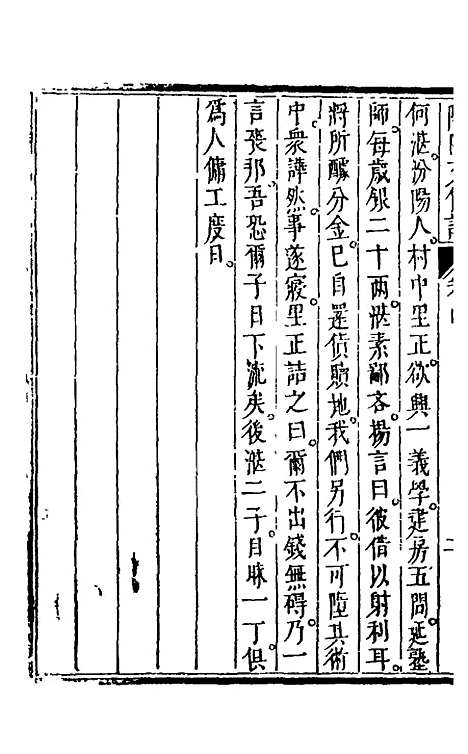 何湛汾陽人。村中里正欲興一義學。建房五間。延塾
師。每歲銀二十兩。湛素鄙吝。揚言曰。彼借以射利耳。
將所醵分金。已自還債贖地。我們另行。不可墮其術
中。衆譁然。事遂寢。里正詰之曰。爾不出錢無碍。乃一
言喪邪。吾恐爾子目下流矣。後湛二子目眯一丁。俱
爲人傭工度日。